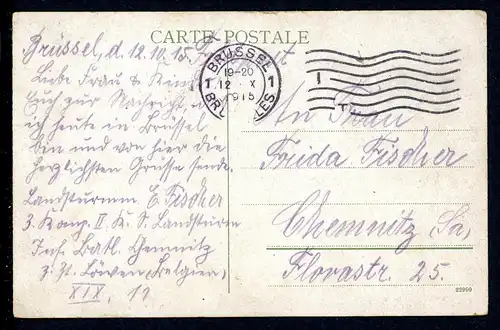 CARTE POSTALE
Brüssel, d. 12.10.15.
Liebe Frau & Kind
Euch zur Nachricht, d.
ich heute in Brüssel
bin und von hier die
herzlichsten Grüsse sende.
Landsturmm. E. Fischer
3. Komp. II K. S. Landsturm
Inf. Batl. Chemnitz
z. Zt. Löwen (Belgien)
XIX, 12
BRÜSSEL
19-20
1 12 X 1
1915
BRUXELLES
An Frau
Frida Fischer
Chemnitz Sa,
Florastr. 25.
22990